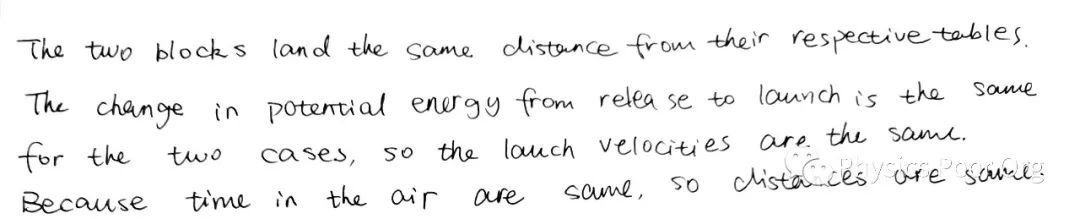 The two blocks land the same distance from their respective tables.
The change in potential energy from release to launch is the same
for the two cases, so the lauch velocities are the same.
Because time in the air are same, so distances are same.
Physics.Poor.Org